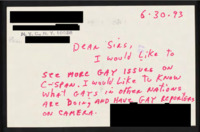 6-30-93
Dear Sirs,
I would like to
see more gay issues on
C-SPAN. I would like to know
what gays in other nations
are doing and have gay reporters
on camera.